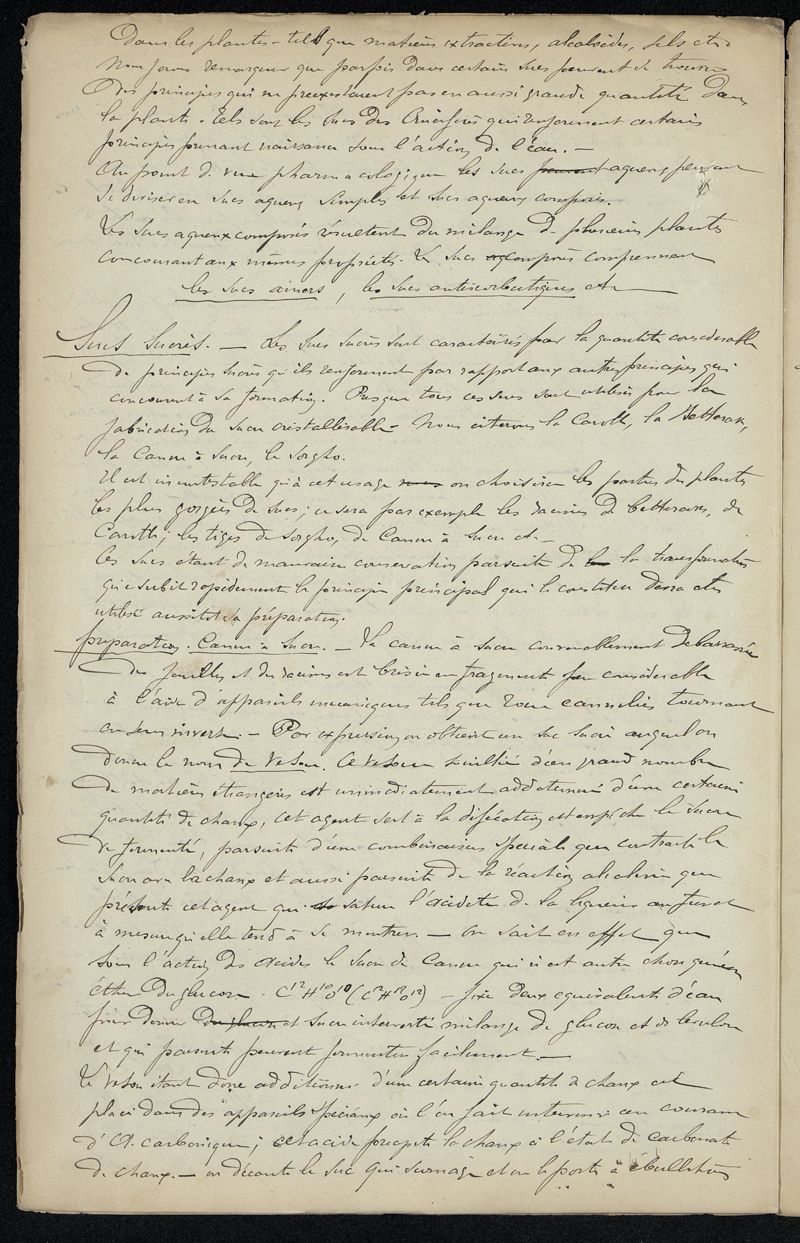 Dans les plantes - tels que matières extractives, alcaloïdes, sels etc.
Nous ferons remarquer que parfois dans certains sucs peuvent se trouver
Des principes qui ne preexistaient pas en aussi grande quantité dans
la plante. Tels sont les sucs des Crucifères qui renferment certains
principes prenant naissance sous l'action de l'eau. —
Au point de vue pharmacologique les sucs peuvent aqueux peuvent
se diviser en sucs aqueux simples et sucs aqueux composés.
Les sucs aqueux composés résultent du mélange de plusieurs plantes
concourant aux mêmes propriétés. Les sucs composés comprennent
les sucs amers, les sucs antiscorbutiques etc
Sucs Sucrés. — Les sucs sucrés sont caractérisés par la quantité considerable
de principes sucrés qu'ils renferment par rapport aux autres principes qui
concourent à sa formation. Presque tous ces sucs sont utilisés pour la
fabrication du sucre cristallisable - Nous citerons la Carotte, la Betterave,
la Canne à sucre, le Sorgho.
Il est incontestable qu'à cet usage on choisira les parties des plantes
les plus gorgées de suc; ce sera par exemple les racines de betteraves, de
Carotte; les tiges de Sorgho, de Canne à sucre etc —
Ces sucs étant de mauvaise conservation par suite de la transformation
que subit rapidement le principe principal qui le constitue devra être
utilisé aussitôt sa préparation.
préparation. Canne à sucre. — La canne à sucre convenablement debarrassée
des feuilles et des racines est brisée en fragments peu considerable
à l'aide d'appareils mecaniques tels que roues cannelées tournant
en sens inverse. — Par expression on obtient un suc sucré auquel on
donne le nom de Vesou. Ce vesou souillé d'un grand nombre
de matières étrangères est immédiatement additionné d'une certaine
quantité de chaux, cet agent sert à la défécation et empêche le sucre
de fermenter, par suite d'une combinaison spéciale que contracte le
sucre avec la chaux et aussi par suite de la réaction alcaline que
présente cet agent qui sature l'acidité de la liqueur au fur et
à mesure qu'elle tend à se montrer. — On sait en effet que
sous l'action des acides le sucre de Canne qui n'est autre chose qu'un
éther du glucose - C¹²H¹⁰O¹⁰(C¹²H¹²O¹²) — fixe deux equivalents d'eau
pour donner du glucose et sucre interverti mélange de glucose et de levulose
et qui par suite peuvent fermenter facilement. —
Le Vesou étant donc additionné d'une certaine quantité de chaux est
placé dans des appareils spéciaux où l'on fait intervenir un courant
d'A. carbonique; cet acide precipite la chaux à l'état de carbonate
de chaux. — on décante le suc qui surnage et on le porte à ébullition